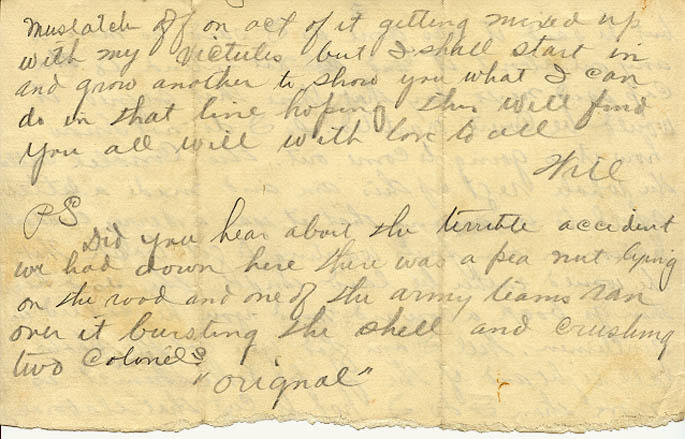 Mustatch off on act of it getting mixed up
with my Victules but I shall start in
and grow another to show you what I can
do in that line hoping this will find
you all will with love to all
Will
PS
Did you hear about the terrible accident
we had down here there was a pea nut lying
on the road and one of the army teams ran
over it bursting the shell and crushing
two Colonels
"orignal"